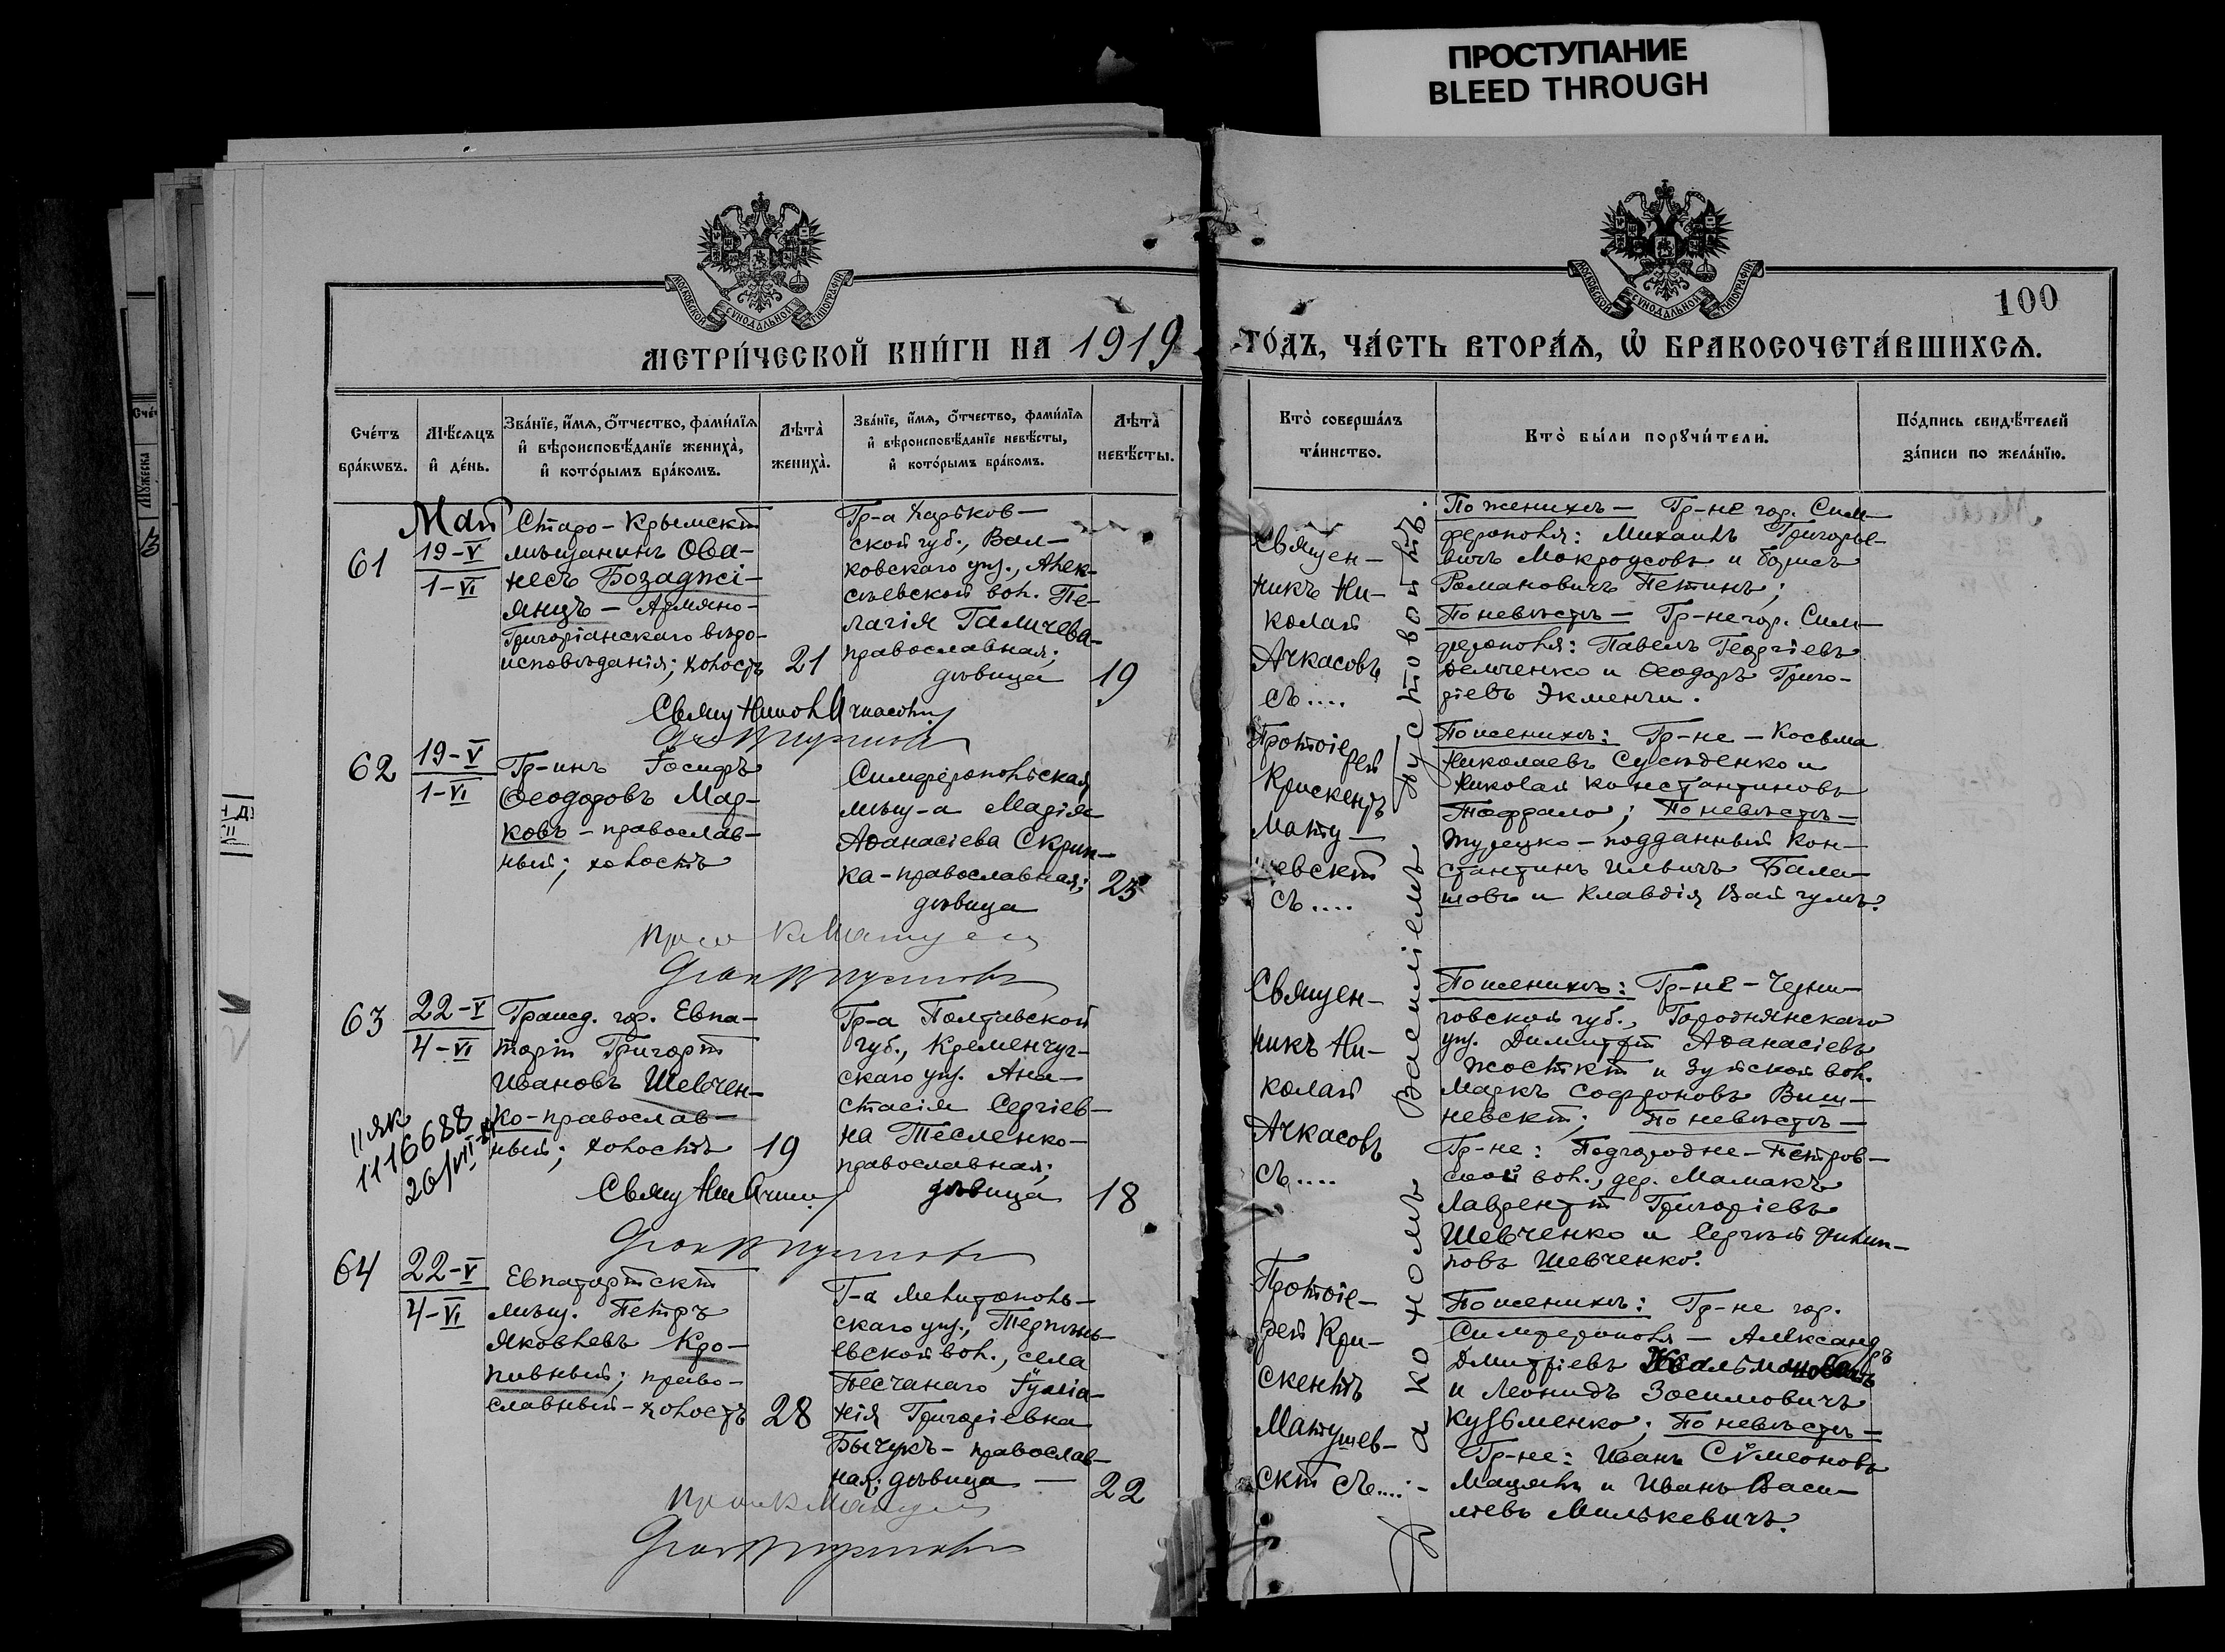 ПРОСТУПАНИЕ
BLEED THROUGH
МОСКОВСКОЙ СѴНОДАЛЬНОЙ ТИПОГРАФІИ
МОСКОВСКОЙ СѴНОДАЛЬНОЙ ТИПОГРАФІИ
100
МЕТРИ́ЧЕСКОЙ КНИ́ГИ НА 1919
ГО́ДЪ, ЧА́СТЬ ВТОРА́Я, Ѡ БРАКОСОЧЕТА́ВШИХСЯ.
Сче́тъ
бра́кѡвъ.
Мѣ́сяцъ
и҆ де́нь.
Зва́нїе, и҆́мя, ѻ҆́тчество, фами́лїя
и҆ вѣроисповѣ́данїе жениха̀,
и҆ кото́рымъ бра́комъ.
Лѣта̀
жениха̀.
Зва́нїе, и҆́мя, ѻ҆́тчество, фами́лїя
и҆ вѣроисповѣ́данїе невѣ́сты,
и҆ кото́рымъ бра́комъ.
Лѣта̀
невѣ́сты.
Кто̀ соверша́лъ
та́инство.
Кто̀ бы́ли порꙋчи́тели.
По́дпись свидѣ́телей
за́писи по жела́нїю.
Май
61
19-V
1-VI
Старо-Крымскій
мѣщанинъ Ова-
несъ Бозаджі-
янцъ - Армяно-
Григоріанскаго вѣро-
исповѣданія; холостъ
21
Гр-а Харьков-
ской губ., Вал-
ковскаго уѣз., Алек-
сѣевской вол. Пе-
лагія Галичева-
православная;
дѣвица
19
Священ-
никъ Ни-
колай
Ачкасовъ
съ....
По женихѣ - Гр-не гор. Сим-
ферополя: Михаилъ Григорье-
вичъ Мокроусовъ и Борисъ
Романовичъ Петинъ;
По невѣстѣ - Гр-не гор. Сим-
ферополя: Павелъ Георгіевъ
Демченко и Ѳеодоръ Григо-
ріевъ Экменчи.
62
19-V
1-VI
Гр-инъ Іосифъ
Ѳеодоровъ Мар-
ковъ - православ-
ный; холостъ
Симферопольская
мѣщ-а Марія
Аѳанасіева Скрип-
ка - православная;
дѣвица
25
Протоіерей
Крискентъ
Мату-
шевскій
съ....
По женихѣ: Гр-не - Косьма
Николаевъ Сусѣденко и
Николай Константиновъ
Тоффало; По невѣстѣ -
Турецко-подданный Кон-
стантинъ Ильичъ Бала-
шовъ и Клавдія Вайчумъ.
63
22-V
4-VI
Гражд. гор. Евпа-
торіи Григорій
Ивановъ Шевчен-
ко - православ-
ный; холостъ
19
II ЯК
1116688
26/VII
Гр-а Полтавской
губ., Кременчуг-
скаго уѣз. Ана-
стасія Сергіев-
на Тесленко-
православная;
дѣвица
18
Священ-
никъ Ни-
колай
Ачкасовъ
съ....
По женихѣ: Гр-не - Черни-
говской губ., Городнянскаго
уѣз. Димитрій Аѳанасіевъ
Жосткій и Зуйской вол.
Маркъ Софроновъ Виш-
невскій; По невѣстѣ -
Гр-не: Подгородне-Петров-
ской вол., дер. Мамакъ
Лаврентій Григоріевъ
Шевченко и Сергѣй Филип-
повъ Шевченко.
64
22-V
4-VI
Евпаторійскій
мѣщ. Петръ
Яковлевъ Кро-
пивный; право-
славный - холостъ
28
Г-а Мелитополь-
скаго уѣз., Терпѣнь-
евской вол., села
Песчанаго Іуліа-
нія Григоріевна
Бычукъ - православ-
ная; дѣвица -
22
Протоіе-
рей Кри-
скентъ
Матушев-
скій съ....
По женихѣ: Гр-не гор.
Симферополя - Александръ
Дмитріевъ
и Леонидъ Зосимовичъ
Кузьменко; По невѣстѣ -
Гр-не: Иванъ Сѵмеоновъ
Мацякъ и Иванъ Васи-
ліевъ Милькевичъ.
Діакономъ Василіемъ Пустовойтъ.